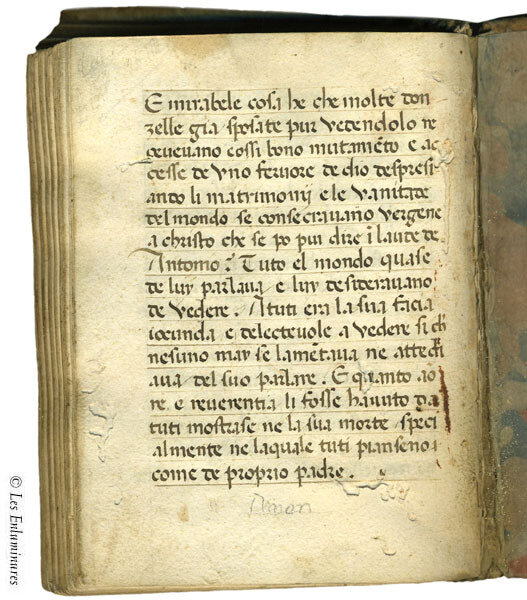 E mirabele cosa he che molte don
zelle gia sposate pur vedendolo re
cevevano cossi bono mutamēto e ac
cesse de uno fervore de dio despresi
ando li matrimonij e le vanitade
del mondo se consecravano vergene
a christo che se po pui dire ī laude de
Antonio? Tuto el mondo quase
de luy parlava e luy desideravano
de vedere. A tuti era la sua facia
iocunda e delectevole a vedere si ch
nesuno may se lamētava ne attedi
ava del suo parlare. E quanto ao
re. e reverentia li fosse havuto da
tuti mostrase ne la sua morte speci
almente ne laquale tuti pianseno
come de proprio padre.
© Les Enluminures